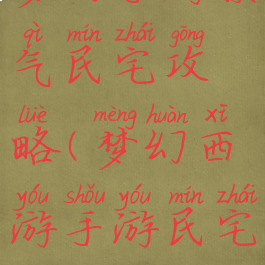 qì mín zhái gōng
气民宅攻
lüè mèng huàn xī
略(梦幻西
yóu shǒu yóu mín zhái
游手游民宅